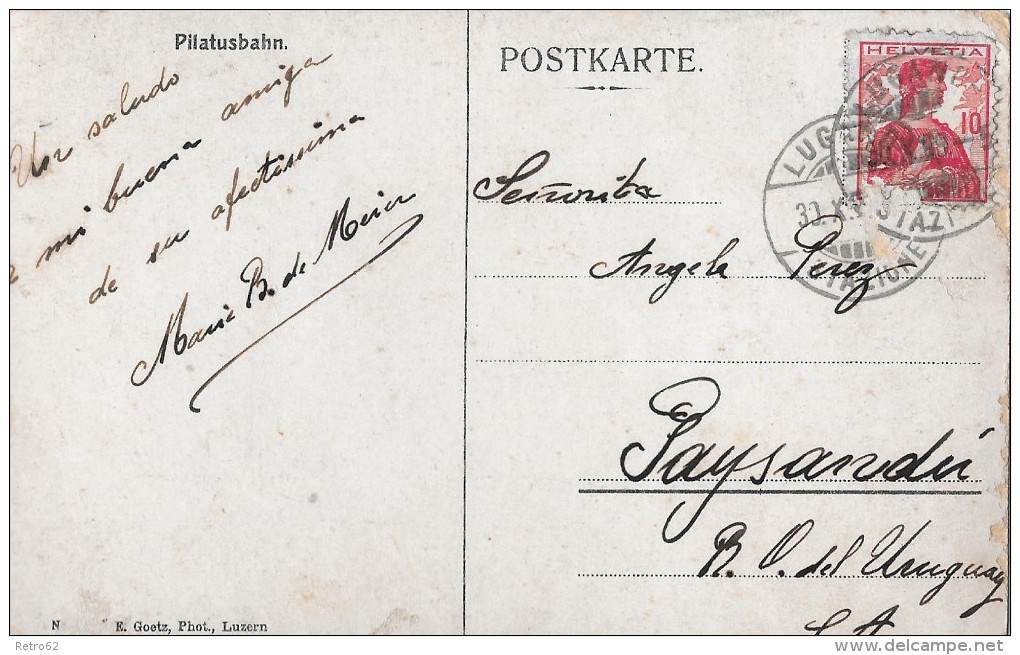 Pilatusbahn.
POSTKARTE.
HELVETIA
10
LUGANO
30.X
STAZIONE
STAZI
Un saludo
a mi buena amiga
de su afectissima
Maria B. de Meier
Señorita
Angela Perez
Paysandú
R. O. del Uruguay
S A
N E. Goetz, Phot., Luzern
Retro62
www.delcampe.net